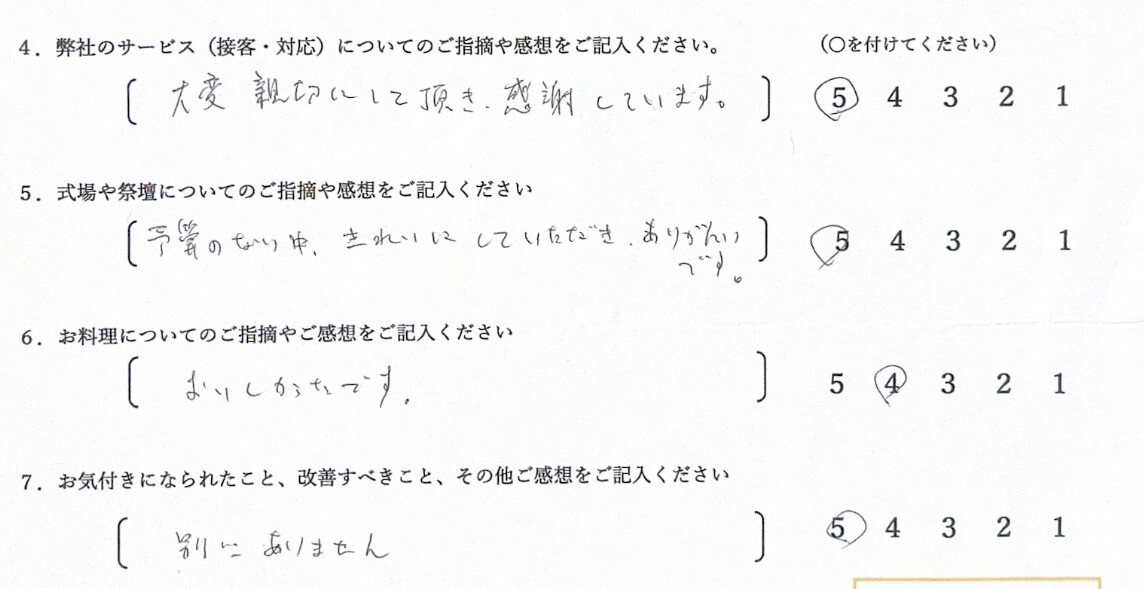 4．弊社のサービス（接客・対応）についてのご指摘や感想をご記入ください。 （〇を付けてください）
大変親切にして頂き、感謝しています。 5 4 3 2 1
5．式場や祭壇についてのご指摘や感想をご記入ください
予算のない中、きれいにしていただき、ありがたい 5 4 3 2 1
です。
6．お料理についてのご指摘やご感想をご記入ください
おいしかったです。 5 4 3 2 1
7．お気付きになられたこと、改善すべきこと、その他ご感想をご記入ください
別にありません 5 4 3 2 1